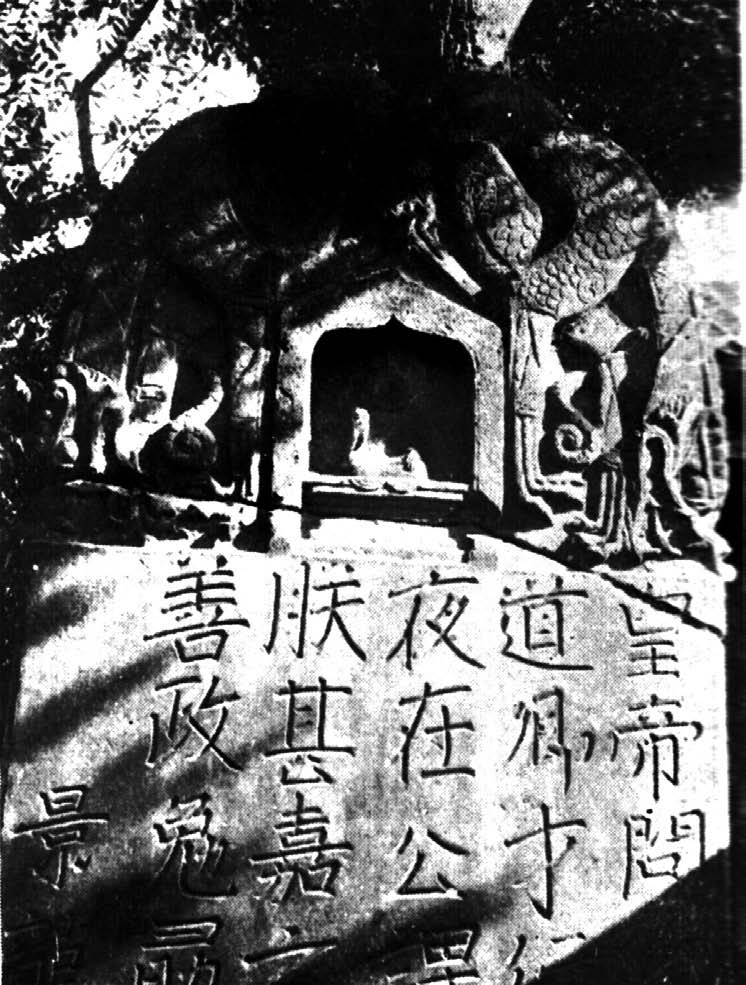 皇帝問
道卿才
夜在公
朕甚嘉
善政勉
景